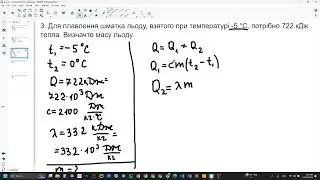 3. Для плавлення шматка льоду, взятого при температурі -5 °C, потрібно 722 кДж
тепла. Визначте масу льоду.
t₁ = -5 °C
t₂ = 0 °C
Q = 722 кДж =
722·10³ Дж
c = 2100 Дж/кг·°C
λ = 332 кДж/кг =
= 332·10³ Дж/кг
m = ?
Q = Q₁ + Q₂
Q₁ = cm(t₂ - t₁)
Q₂ = λm